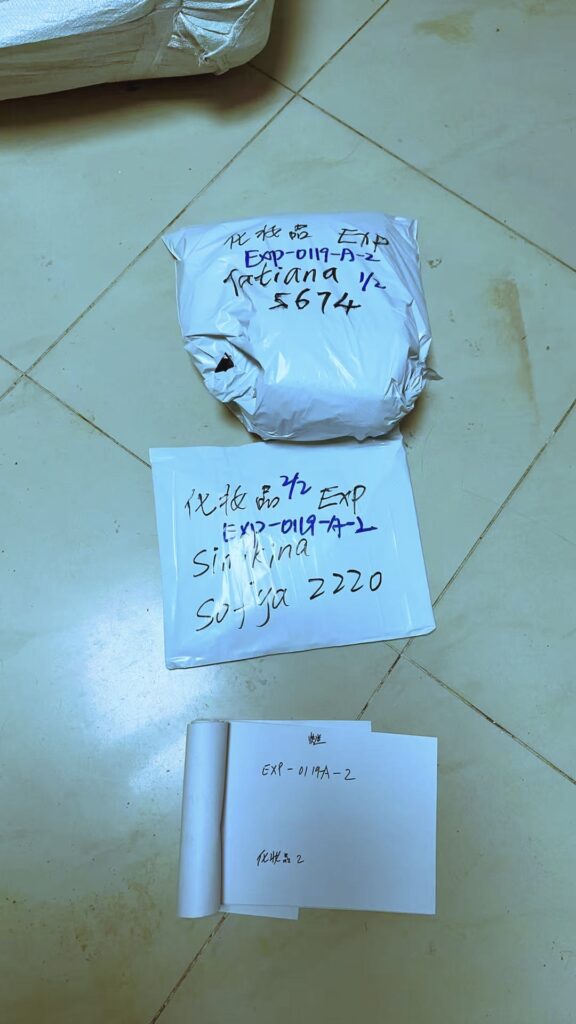 化妆品 EXP
EXP-0119-A-2
Tatiana 1/2
5674
化妆品 2/2 EXP
EXP-0119-A-2
Sinikina
Sofiya 2220
EXP-0119A-2
化妆品 2